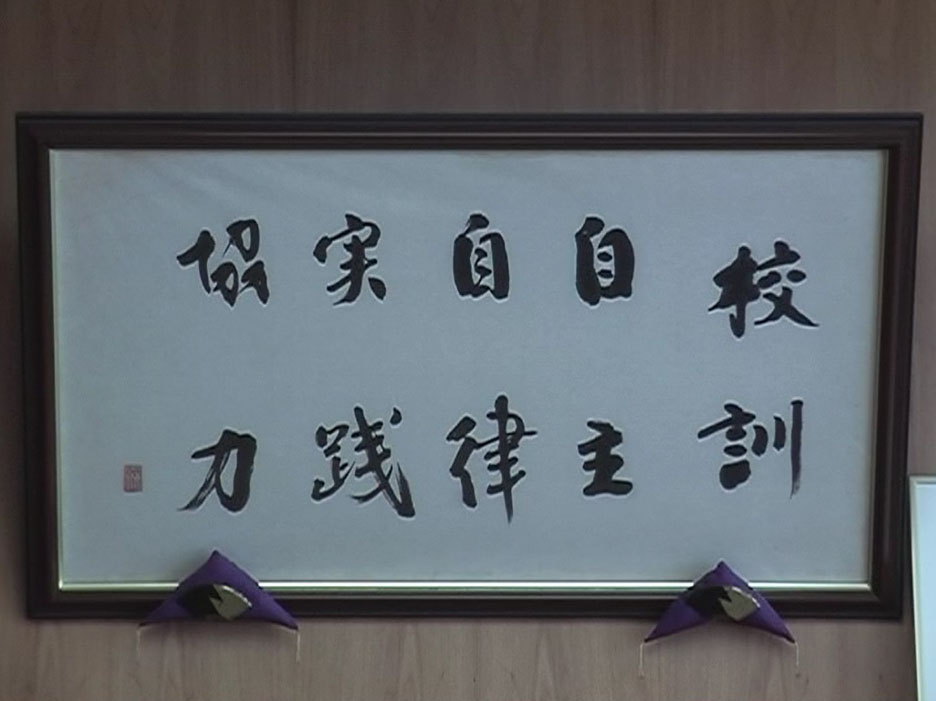 校訓
自主
自律
実践
協力